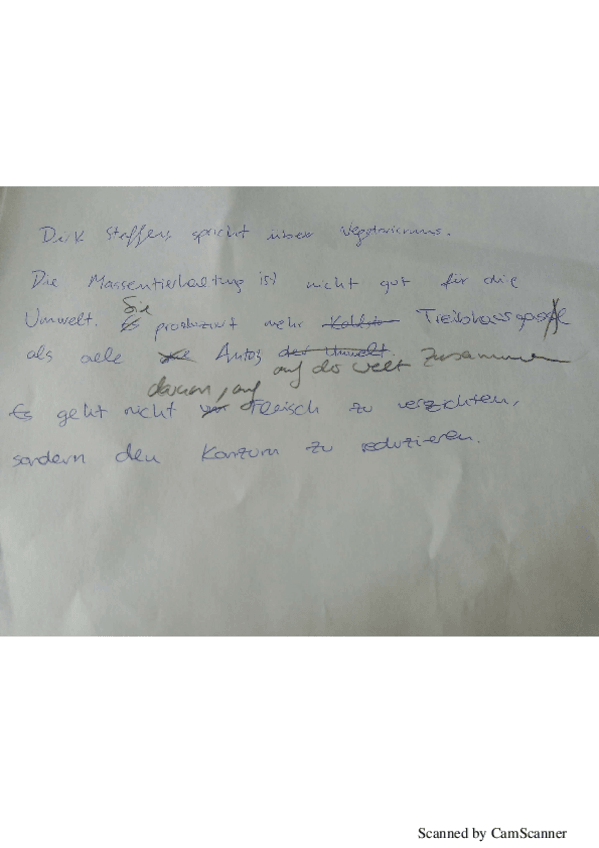 Dirk Steffens spricht über Vegetarismus.
Die Massentierhaltung ist nicht gut für die
Sie
Umwelt. Es produziert mehr Treibhausgase
als alle Autos der Umwelt.
auf der Welt zusammen
darum, auf
Es geht nicht Fleisch zu verzichten,
sondern den Konzum zu reduzieren.
Scanned by CamScanner